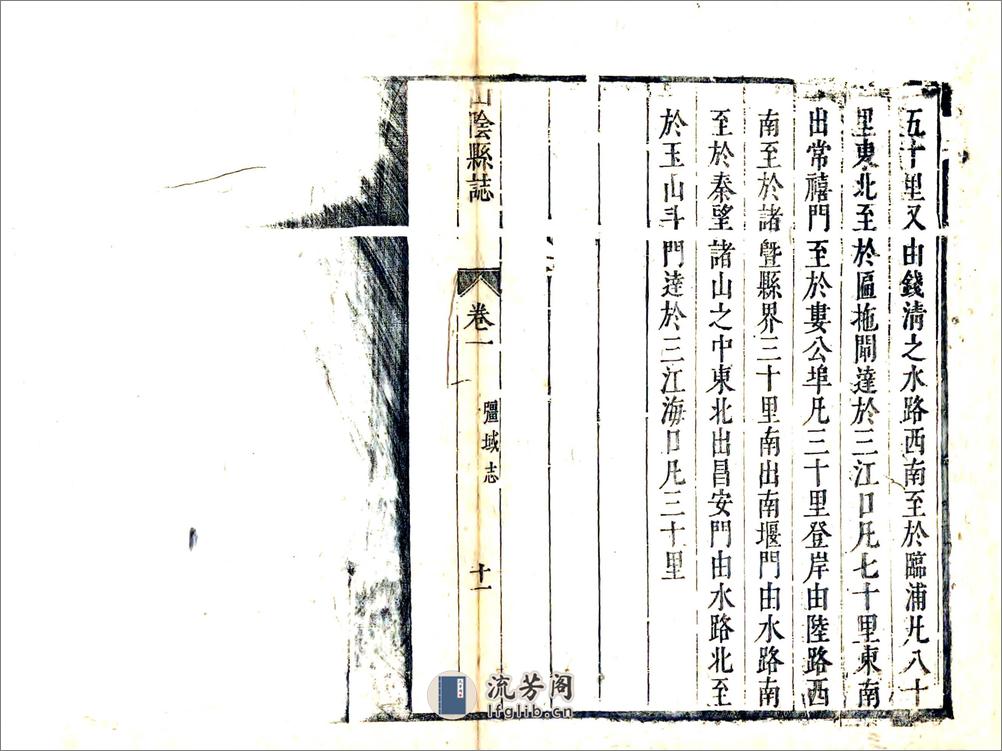 五十里又由錢清之水路西南至於臨浦凡八十
里東北至於匾拖閘達於三江口凡七十里東南
出常禧門至於婁公埠凡三十里登岸由陸路西
南至於諸曁縣界三十里南出南堰門由水路南
至於秦望諸山之中東北出昌安門由水路北至
於玉山斗門達於三江海口凡三十里
山陰縣誌
卷一
疆域志
十一
流芳阁
lfglib.cn